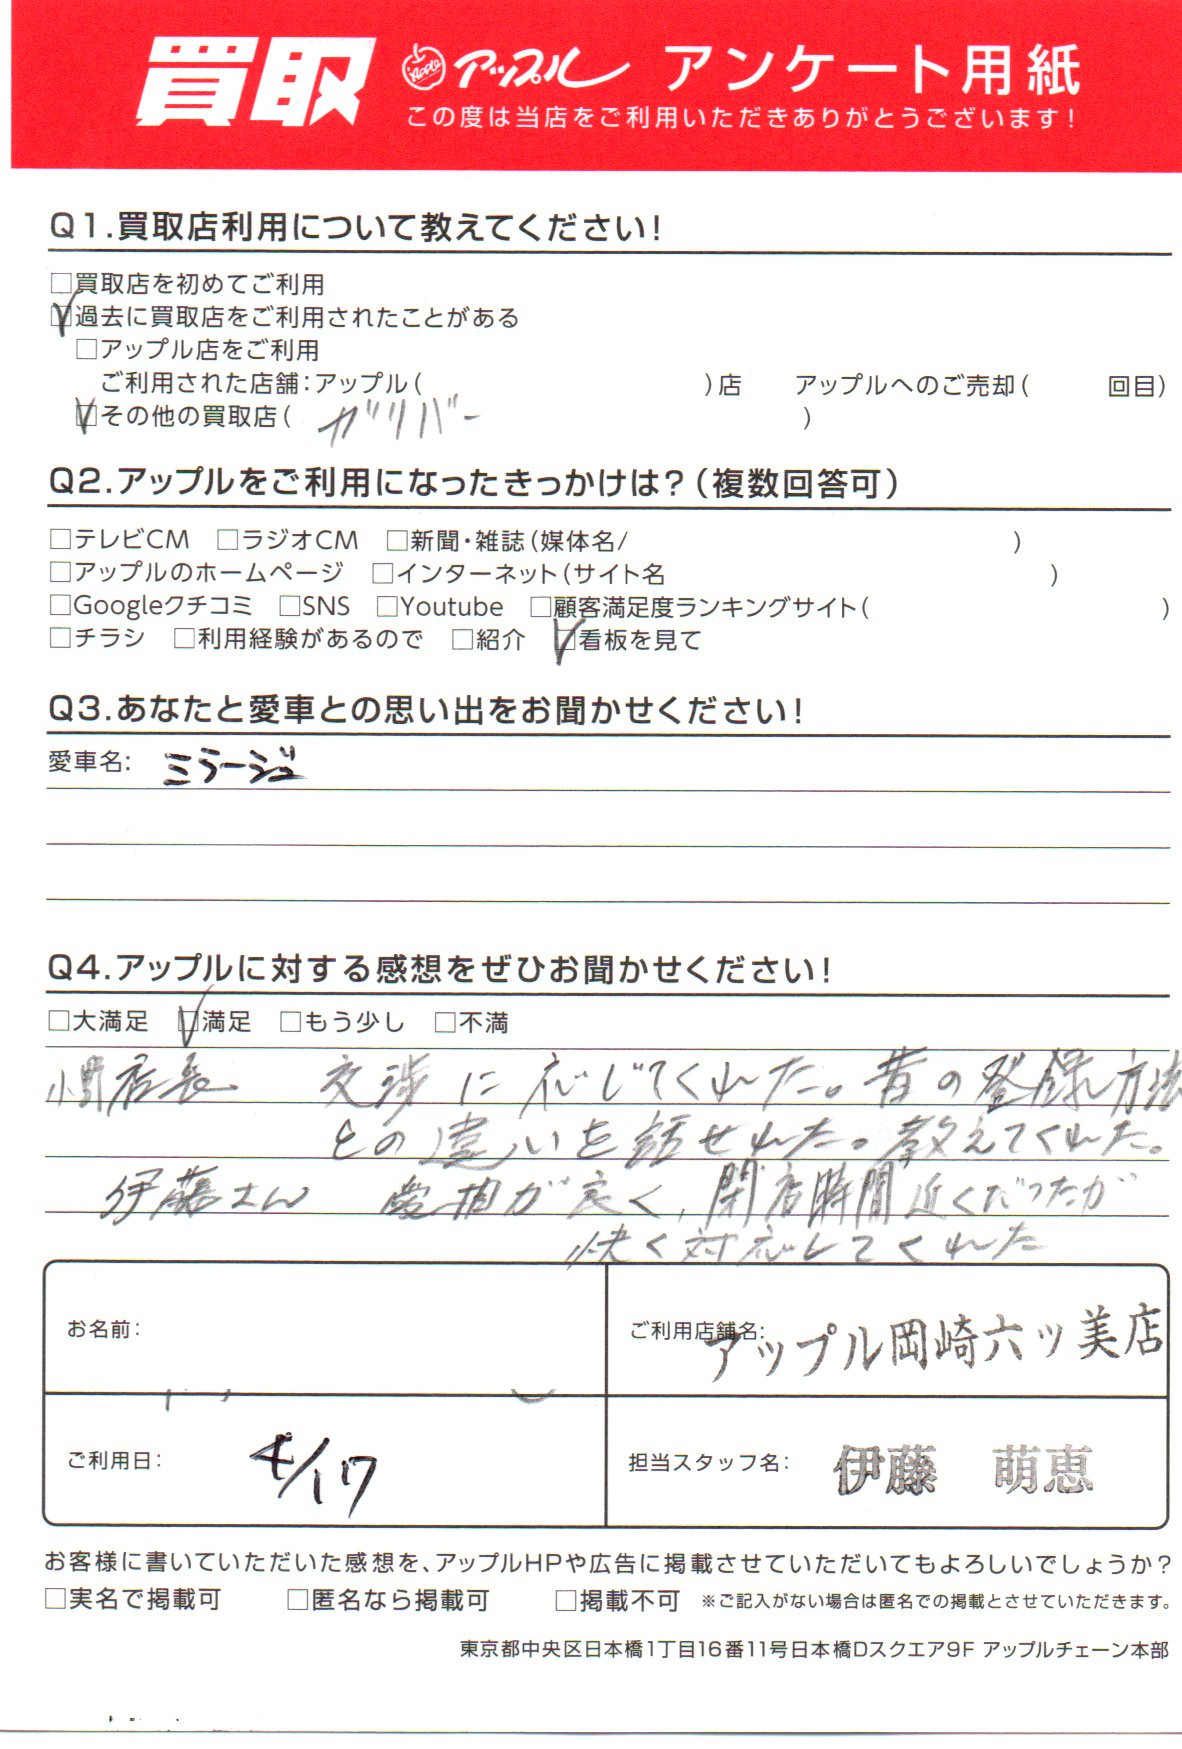 買取 Apple アップル アンケート用紙
この度は当店をご利用いただきありがとうございます!
Q1.買取店利用について教えてください!
□買取店を初めてご利用
☑過去に買取店をご利用されたことがある
□アップル店をご利用
ご利用された店舗:アップル( )店 アップルへのご売却( 回目)
☑その他の買取店( ガリバー )
Q2.アップルをご利用になったきっかけは?(複数回答可)
□テレビCM □ラジオCM □新聞・雑誌(媒体名/ )
□アップルのホームページ □インターネット(サイト名 )
□Googleクチコミ □SNS □Youtube □顧客満足度ランキングサイト( )
□チラシ □利用経験があるので □紹介 ☑看板を見て
Q3.あなたと愛車との思い出をお聞かせください!
愛車名: ミラージュ
Q4.アップルに対する感想をぜひお聞かせください!
□大満足 ☑満足 □もう少し □不満
小野店長 交渉に応じてくれた。昔の登録方法
との違いを話せれた。教えてくれた。
伊藤さん 愛想が良く,閉店時間近くだったが
快く対応してくれた
お名前:
ご利用店舗名: アップル岡崎六ッ美店
ご利用日: 4/17
担当スタッフ名: 伊藤 萌恵
お客様に書いていただいた感想を、アップルHPや広告に掲載させていただいてもよろしいでしょうか?
□実名で掲載可 □匿名なら掲載可 □掲載不可 ※ご記入がない場合は匿名での掲載とさせていただきます。
東京都中央区日本橋1丁目16番11号日本橋Dスクエア9F アップルチェーン本部